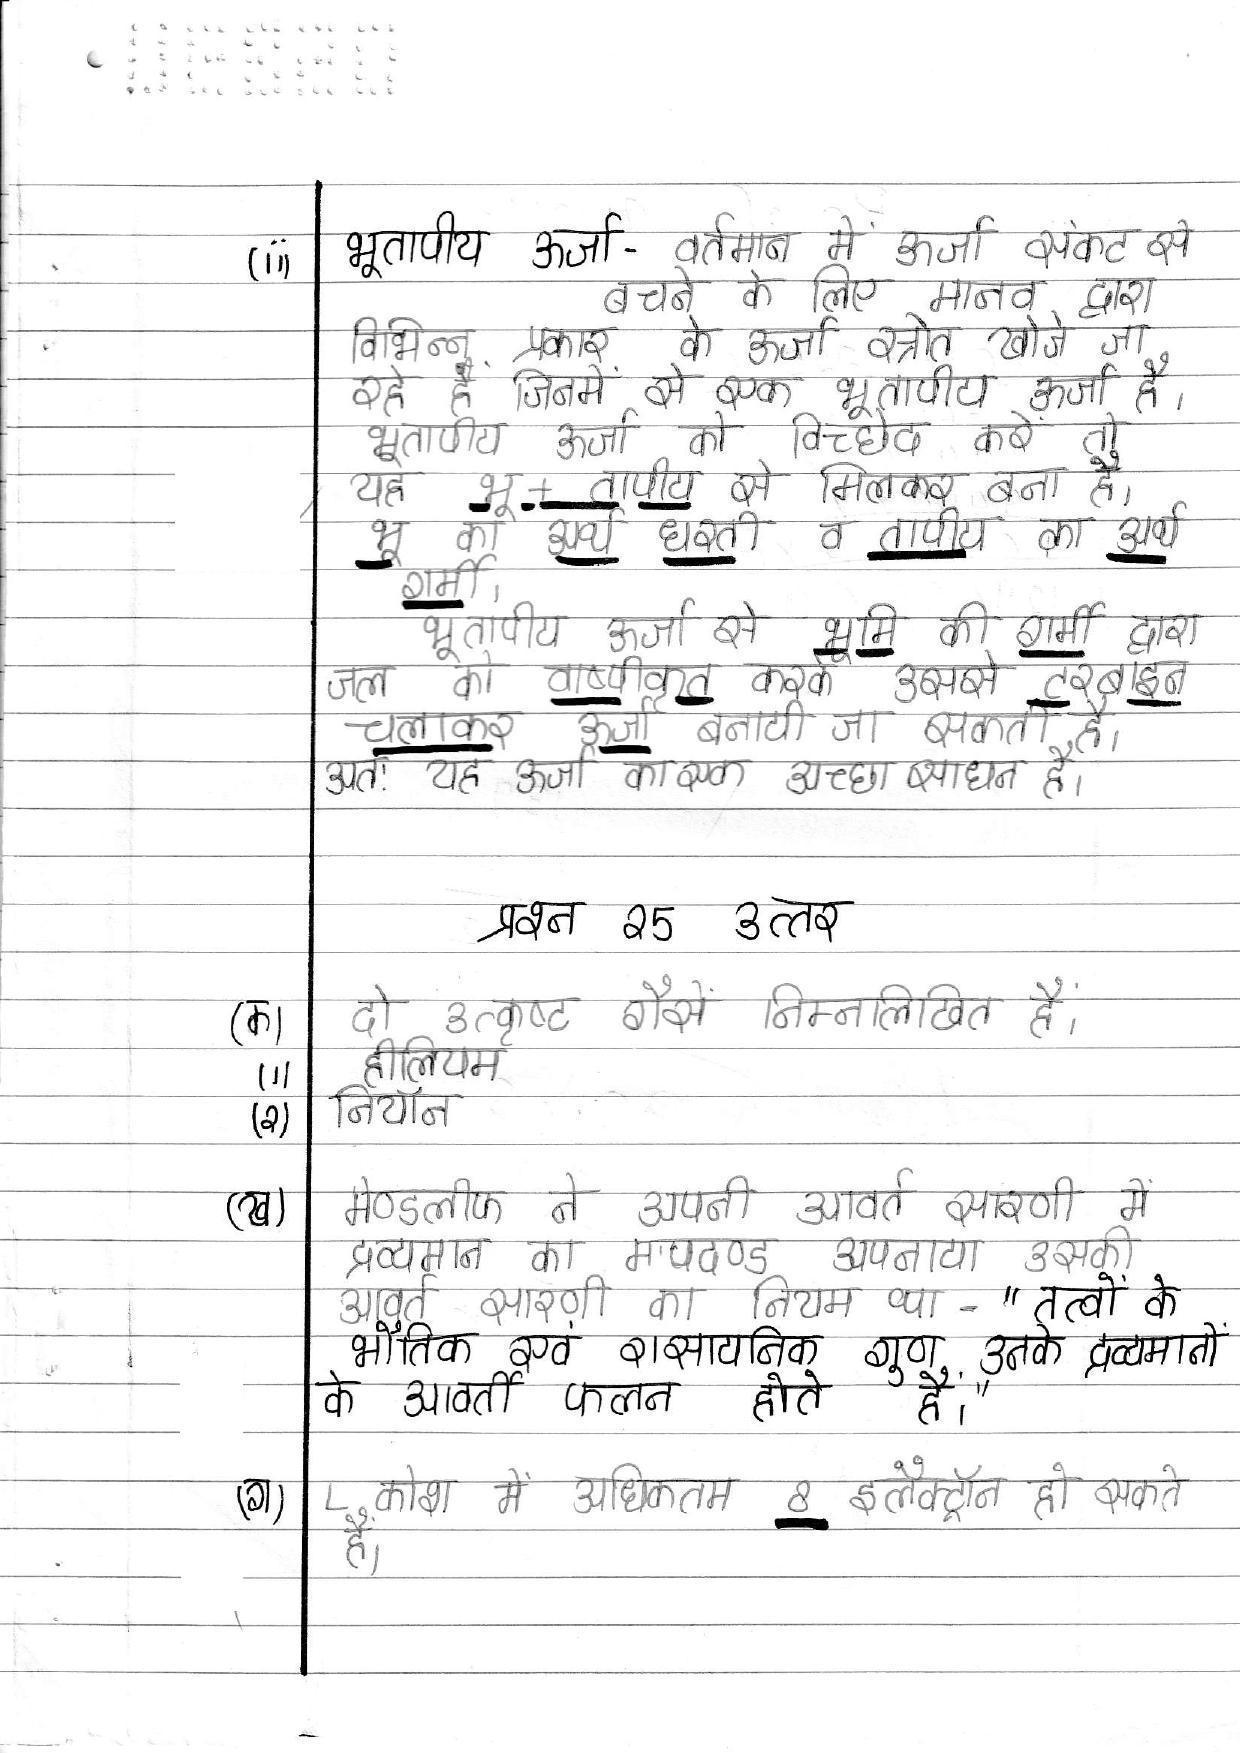 (ii) भूतापीय ऊर्जा - वर्तमान में ऊर्जा संकट से
बचने के लिए मानव द्वारा
विभिन्न प्रकार के ऊर्जा स्त्रोत खोजे जा
रहे हैं जिनमें से एक भूतापीय ऊर्जा है।
भूतापीय ऊर्जा को विच्छेद करें तो
यह भू + तापीय से मिलकर बना है।
भू का अर्थ धरती व तापीय का अर्थ
गर्मी।
भूतापीय ऊर्जा से भूमि की गर्मी द्वारा
जल को वाष्पीकृत करके उससे टरबाइन
चलाकर ऊर्जा बनायी जा सकती है।
अतः यह ऊर्जा का एक अच्छा साधन है।
प्रश्न 25 उत्तर
(क) दो उत्कृष्ट गैसें निम्नलिखित हैं।
(1) हीलियम
(2) नियॉन
(ख) मेण्डलीफ ने अपनी आवर्त सारणी में
द्रव्यमान का मापदण्ड अपनाया उसकी
आवर्त सारणी का नियम था - "तत्वों के
भौतिक एवं रासायनिक गुण उनके द्रव्यमानों
के आवर्ती फलन होते हैं।"
(ग) L कोश में अधिकतम 8 इलैक्ट्रॉन हो सकते
हैं।